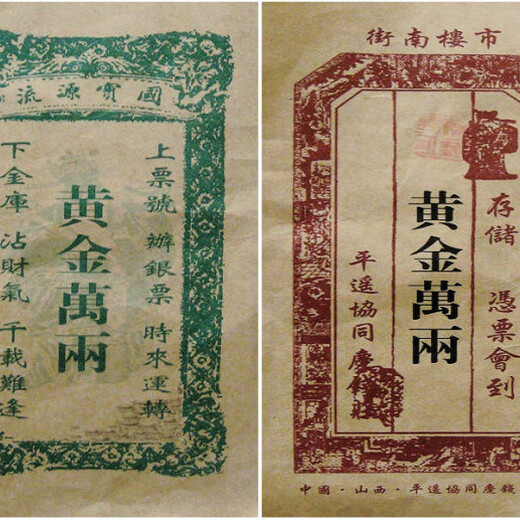 國寶源流
上票號 辦銀票 時來運轉
黃金萬兩
下金庫 沾財氣 千載難逢
市樓南街
存儲 憑票會到
黃金萬兩
平遥協同慶錢莊
中國·山西·平遥協同慶錢